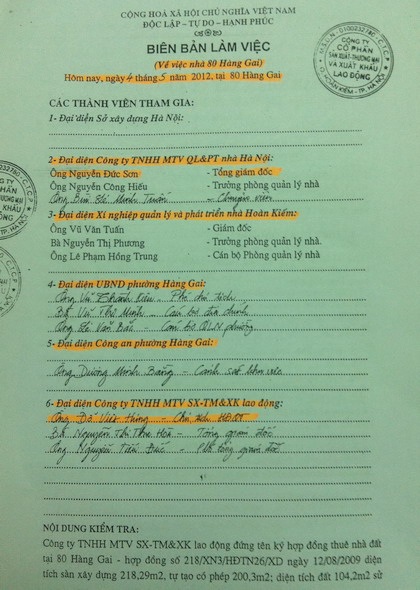 CỘNG HOÀ XÃ HỘI CHỦ NGHĨA VIỆT NAM
ĐỘC LẬP – TỰ DO – HẠNH PHÚC
BIÊN BẢN LÀM VIỆC
(Về việc nhà 80 Hàng Gai)
Hôm nay, ngày 4 tháng 5 năm 2012, tại 80 Hàng Gai
CÔNG TY
CỔ PHẦN
SẢN XUẤT-THƯƠNG MẠI
VÀ XUẤT KHẨU
LAO ĐỘNG
CÁC THÀNH VIÊN THAM GIA:
1- Đại diện Sở xây dựng Hà Nội:
2- Đại diện Công ty TNHH MTV QL&PT nhà Hà Nội:
Ông Nguyễn Đức Sơn - Tổng giám đốc
Ông Nguyễn Công Hiếu - Trưởng phòng quản lý nhà
Ông Minh Tuấn - Chuyên viên
3- Đại diện Xí nghiệp quản lý và phát triển nhà Hoàn Kiếm:
Ông Vũ Văn Tuấn - Giám đốc
Bà Nguyễn Thị Phương - Trưởng phòng quản lý nhà.
Ông Lê Phạm Hồng Trung - Cán bộ Phòng quản lý nhà
4- Đại diện UBND phường Hàng Gai:
Ông Vũ - Phó chủ tịch
Bà Vũ Thu Minh - Cán bộ địa chính
Ông Lê Văn - Cán bộ QLN phường
5- Đại diện Công an phường Hàng Gai:
Ông Dương Minh Bằng - Cảnh sát khu vực
6- Đại diện Công ty TNHH MTV SX-TM&XK lao động:
Ông Đỗ Việt Hùng - Chủ tịch HĐQT
Bà Nguyễn Thị Thu Hoà - Tổng giám đốc
Ông Nguyễn Tiến Đức - Phó tổng giám đốc
NỘI DUNG KIỂM TRA:
Công ty TNHH MTV SX-TM&XK lao động đứng tên ký hợp đồng thuê nhà đất
tại 80 Hàng Gai - hợp đồng số 218/XN3/HĐTN26/XD ngày 12/08/2009 diện
tích sàn xây dựng 218,29m2, tự tạo có phép 200,3m2; diện tích đất 104,2m2 sử